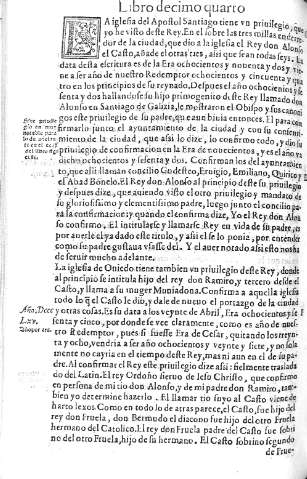 Libro decimo quarto
LA iglesia del Apostol Santiago tiene vn priuilegio, que
yo he visto deste Rey. En el sobre las tres millas en derre-
dor de la ciudad, que dio a la iglesia el Rey don Alonso
el Casto, añade otras tres, assi que sean todas seys. La
data desta escritura es de la Era ochocientos y nouenta y dos, y vie-
ne a ser año de nuestro Redemptor ochocientos y cincuenta y qua
tro en los principios de su reynado. Despues el año ochocientos y se
senta y dos hallandose su hijo primogenito deste Rey llamado don
Alonso en Santiago de Galizia, le mostraron el Obispo y sus canoni
gos este priuilegio de su padre, que aun biuia entonces. El para con
firmarlo junto el ayuntamiento de la ciudad y con su consenti-
miento de la ciudad, que assi lo dize, lo confirmo todo, y dio su
priuilegio de confirmacion en la Era de nouecientos, y es el año ya
dicho ochocientos y sesenta y dos. Confirman los del ayuntamien-
to, que alli llaman concilio Godesteo, Erugio, Emiliano, Quirico y
el Abad Bonelo. El Rey don Alonso al principio deste su priuilegio
y despues dize, que auiendo visto el otro priuilegio y mandato de
su gloriosissimo y clementissimo padre, luego junto el concilio pa-
ra la confirmacion: y quando el confirma dize, Yo el Rey don Alon
so confirmo. El intitularse y llamarse Rey en vida de su padre, es
por auerle el ya dado este titulo, y assi el se lo ponia, por entender
como su padre gustaua vsasse del. Y el auer notado assi esto nos ha
de seruir mucho adelante.
La iglesia de Ouiedo tiene tambien vn priuilegio deste Rey, donde
al principio se intitula hijo del rey don Ramiro, y tercero desde el
Casto, y llama a su muger Moniadona. Confirma a aquella iglesia
todo lo q̃ el Casto le dio, y dale de nueuo el portazgo de la ciudad
y otras cosas. Es su data a los veynte de Abril, Era ochocientos y se
senta y cinco, por donde se vee claramente, como es año de nues-
tro Redemptor, pues si fuesse Era de Cesar, quitando los treyn-
ta y ocho, vendria a ser año ochocientos y veynte y siete, y no sola
mente no cayria en el tiempo deste Rey, mas ni aun en el de su pa-
dre. Al confirmar el Rey este priuilegio dize assi: fielmente traslada
do del Latin. El rey Ordoño sieruo de Iesu Christo, que confirmo
en persona de mi tio don Alonso, y de mi padre don Ramiro, tam-
bien yo determine hazerlo. El llamar tio suyo al Casto viene de
harto lexos. Como en todo lo de atras parece, el Casto, fue hijo del
rey don Fruela, don Bermudo el diacono fue hijo del otro Fruela
hermano del Catolico. El rey don Fruela padre del Casto fue sobri
no del otro Fruela, hijo de su hermano. El Casto sobrino segundo
de Frue-
Año, Dccc
Lxv.